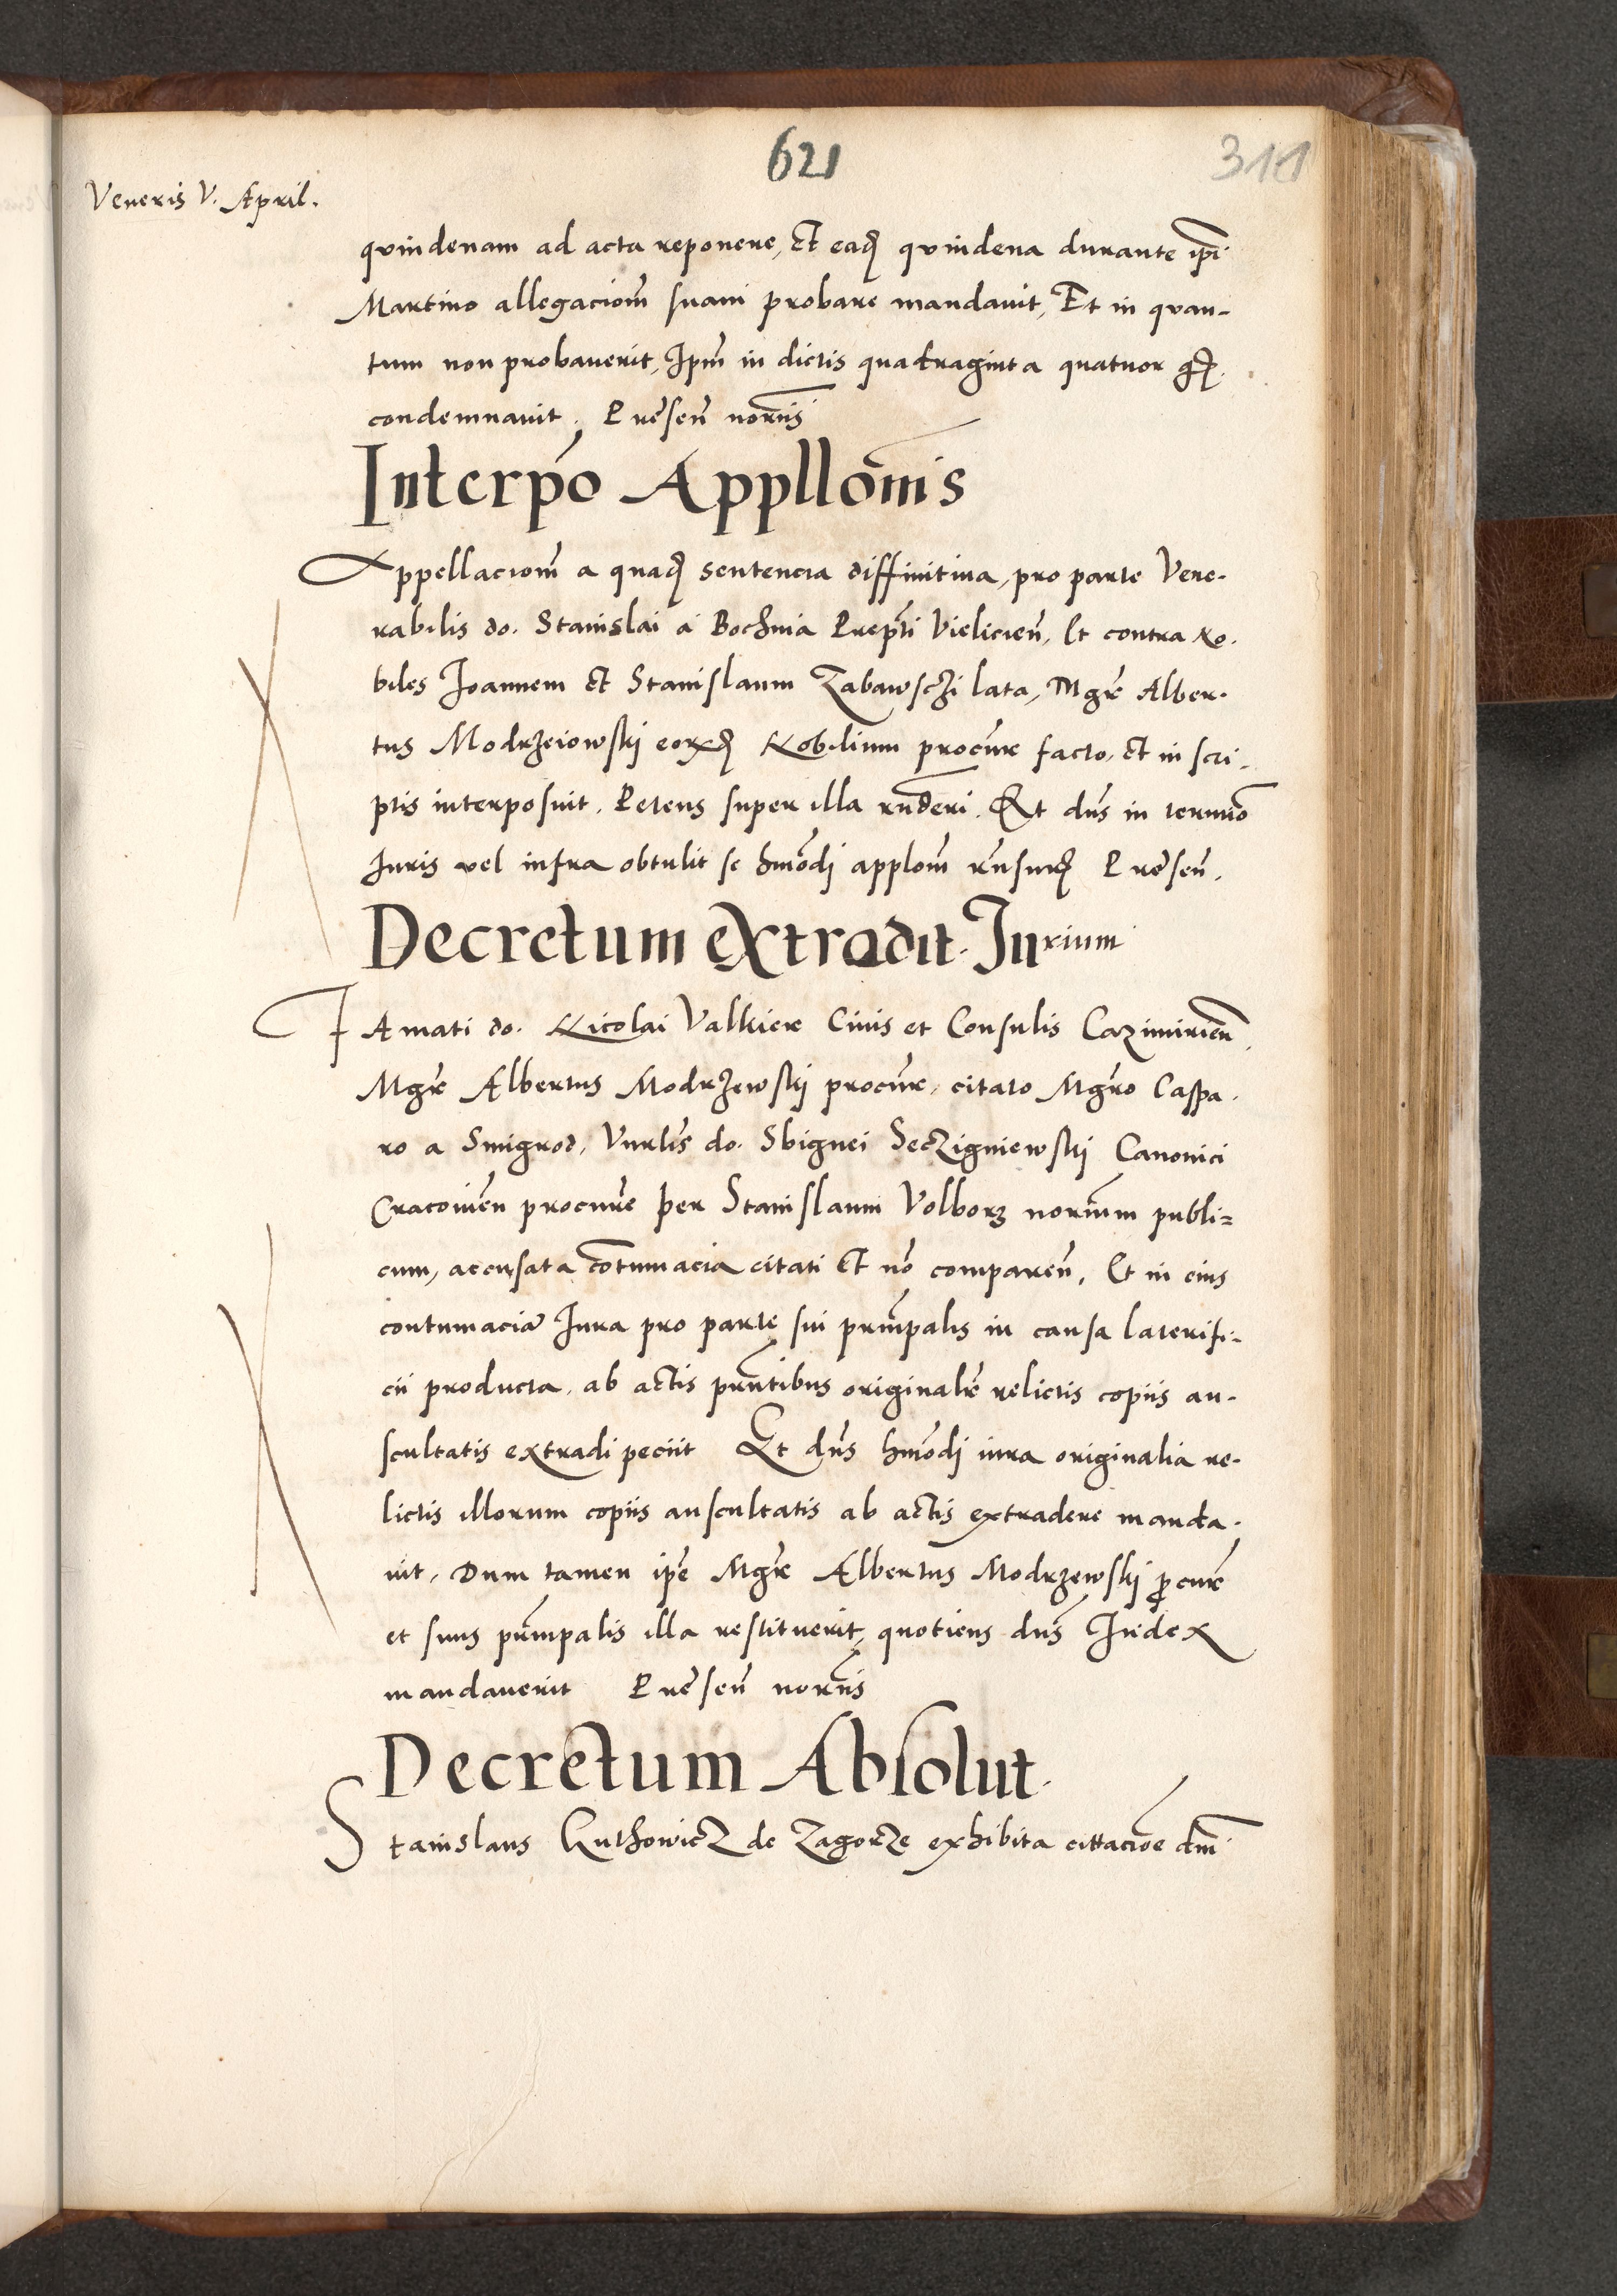 621
311
Veneris V. April.
quindenam ad acta reponere, et eadẽ quindena durante ip̃i
Martino allegaciom̃ suam probare mandavit, Et in quan-
tum non probaverit, Ipm̃ in dictis quadraginta quatuor gͬ.
condemnavit. Presen̄ norñs
Interpõ Appllõnis
Appellaciom̃ a quadẽ sentencia diffinitiva, pro parte Vene-
rabilis do. Stanislai a Bochnia Preptĩ Vielicień, Et contra No-
biles Joannem et Stanislaum Zabawschi lata, Mgr̃ Alber-
tus Modrzeiowski eordẽ Nobilium procur̃ facto, et in scri-
ptis interposuit. Petens super illa rñderi. Et dñs in termĩo
Iuris vel infra obtulit se hmõdi applom̃ rñsurũ Presen̄.
Decretum extradit. Jurium
FAmati do. Nicolai Valkier Civis et Consulis Cazimirień
Mgr̃ Albertus Modrzewski procur̃, citato Mgr̃o Caspa-
ro a Smigrod, Vnrlĩs do. Sbignei Seczigniewski Canonici
Cracovień procur̃e per Stanislaum Volborz norium̃ publi=
cum, accusata cõtumacia citati et nõ comparen̄, Et in eius
contumaciã Iura pro parte sui prin̄palis in causa laterifi-
cii producta, ab actis prñtibus originalr̃ relictis copiis au-
scultatis extradi peciit Et dñs hmõdi iura originalia re-
lictis illorum copiis auscultatis ab actis extradere manda-
vit, Dum tamen ip̃e Mgr̃ Albertus Modrzewski p̃cur̃
et suus prin̄palis illa restituerit, quotiens dñs Iudex
mandaverit Presen̄ norñs
Decretum Absolut.
Stanislaus Kuthowicz de Zagorze exhibita cittaciõe dñi